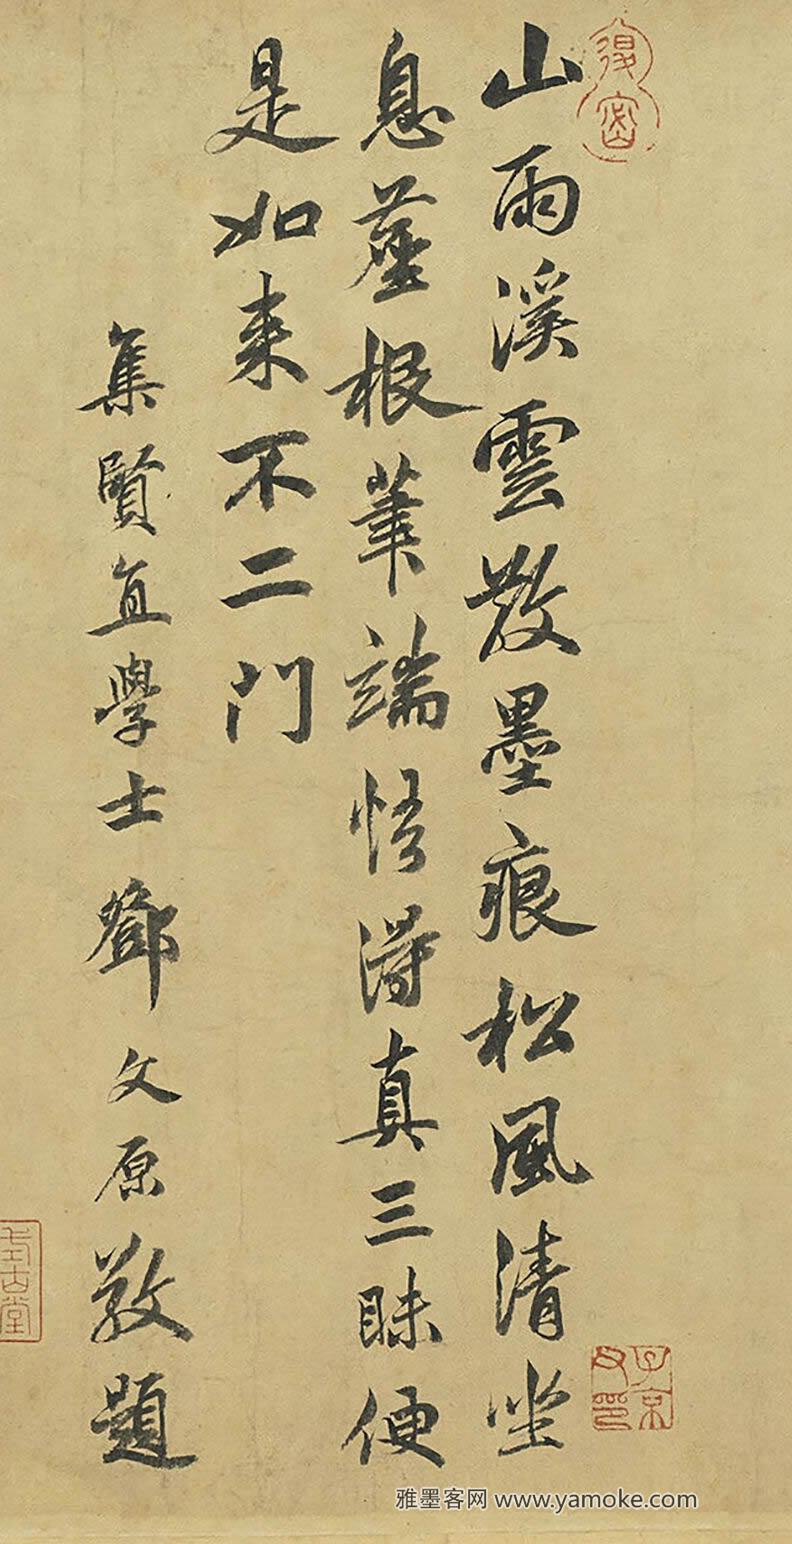 山雨溪雲散墨痕松風清坐
息塵根筆端悟得真三昧便
是如來不二門
集賢直學士鄧文原敬題
子京父印
式古堂
雅墨客网 www.yamoke.com